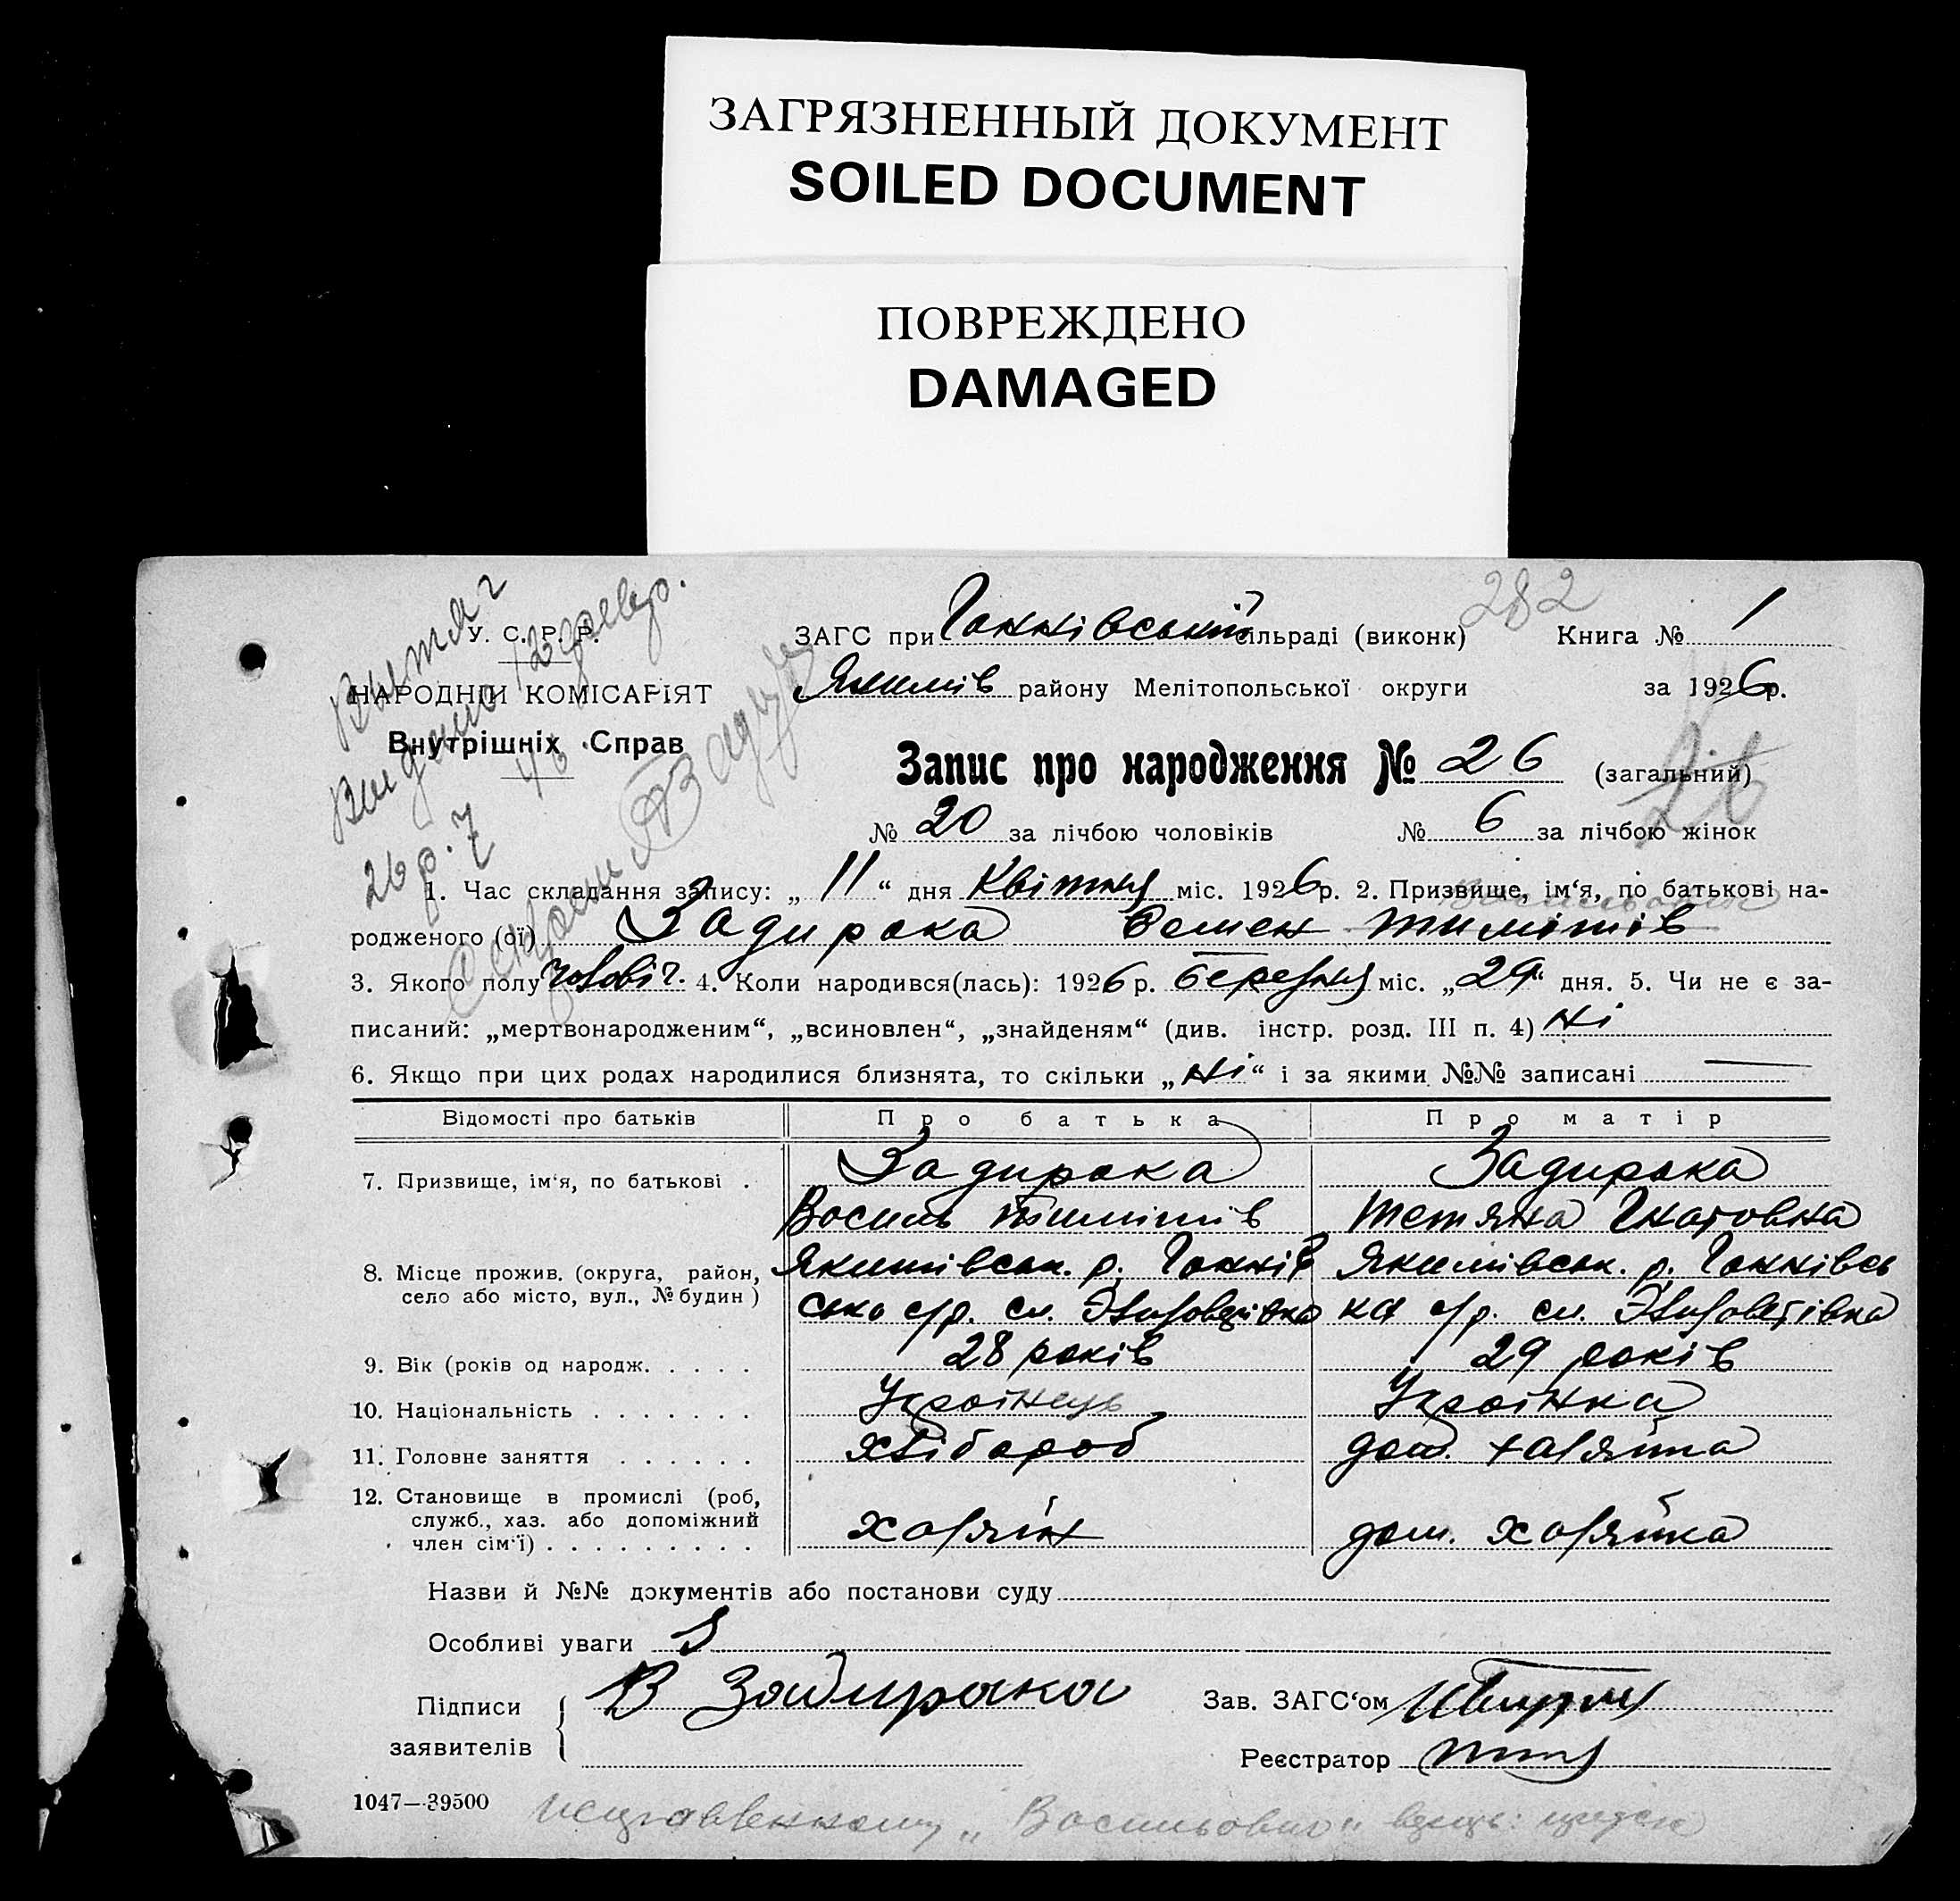 ЗАГРЯЗНЕННЫЙ ДОКУМЕНТ
SOILED DOCUMENT
ПОВРЕЖДЕНО
DAMAGED
282
Витяг
видано
26 р. 7
У. С. Р. Р.
НАРОДНІЙ КОМІСАРІЯТ
Внутрішніх Справ
ЗАГС при Ганнівській сільраді (виконк) Книга № 1
Якимів району Мелітопольської округи за 1926 р.
Запис про народження № 26 (загальний)
26
№ 20 за лічбою чоловіків № 6 за лічбою жінок
1. Час складання запису: „ 11 “ дня Квітня міс. 1926 р. 2. Призвище, ім‘я, по батькові на-
Васильович
родженого (ої) Задирака Семен Тимішів
3. Якого полу чоловіч. 4. Коли народився(лась): 1926 р. березня міс. „29“ дня. 5. Чи не є за-
писаний: „мертвонародженим“, „всиновлен“, „знайденям“ (див. інстр. розд. III п. 4) ні
6. Якщо при цих родах народилися близнята, то скільки „ні“ і за якими №№ записані —
Відомості про батьків Про батька Про матір
7. Призвище, ім‘я, по батькові . Задирака Задирака
Василь Тимішів Тетяна Гнатовна
8. Місце прожив. (округа, район, Якимівськ. р. Ганнів Якимівськ. р. Ганнівсь
село або місто, вул., № будин) ська с/р. см. ка с/р. см.
9. Вік (років од народж. . . . . 28 років 29 років
10. Національність . . . . . . . Українець Українка
11. Головне заняття . . . . . . хлібороб дом. хазяйка
12. Становище в промислі (роб,
служб., хаз. або допоміжний
член сім‘ї) . . . . . . . . . хазяїн дом. хазяйка
Назви й №№ документів або постанови суду
Особливі уваги
Підписи
заявителів
В Задирака
Зав. ЗАГС‘ом
Реєстратор
1047—39500
„Васильович“